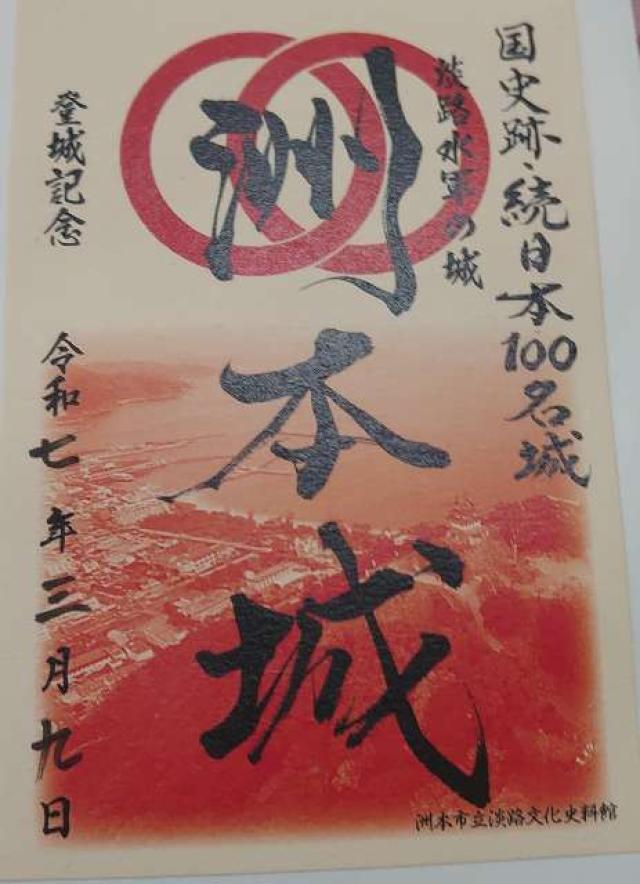 国史跡・続日本100名城
淡路水軍の城
洲本城
登城記念
令和七年三月九日
洲本市立淡路文化史料館